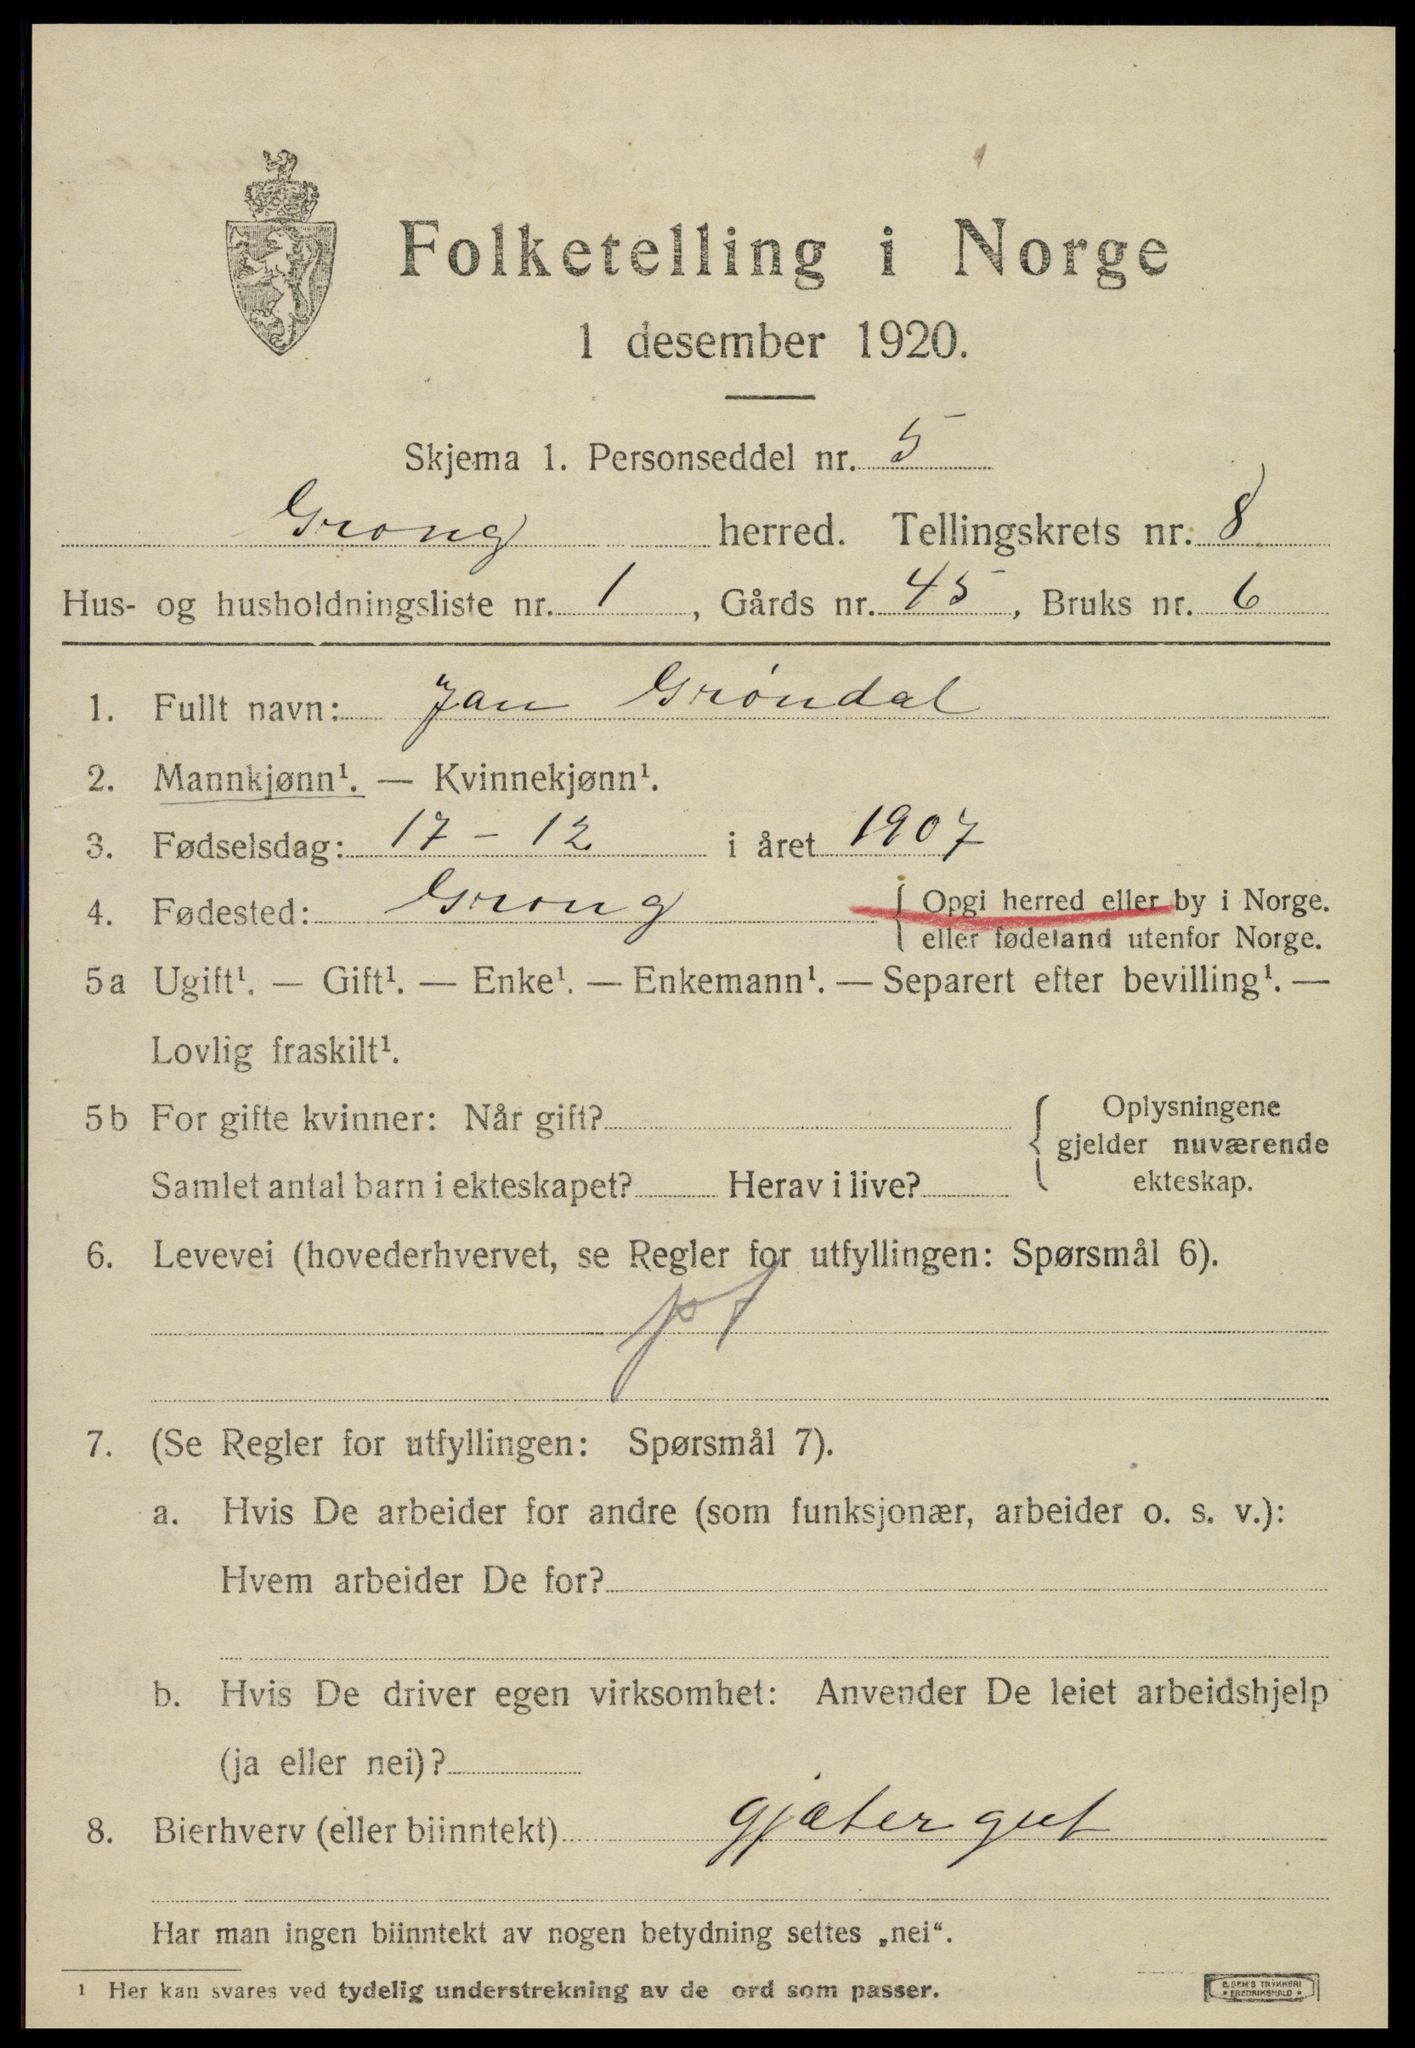 Folketelling i Norge
1 desember 1920.
Skjema 1. Personseddel nr. 5
Grong herred. Tellingskrets nr. 8
Hus- og husholdningsliste nr. 1, Gårds nr. 45, Bruks nr. 6
1. Fullt navn: Jan Grøndal
2. Mannkjønn¹. — Kvinnekjønn¹.
3. Fødselsdag: 17 - 12 i året 1907
4. Fødested: Grong { Opgi herred eller by i Norge.
eller fødeland utenfor Norge.
5a Ugift¹. — Gift¹. — Enke¹. — Enkemann¹. — Separert efter bevilling¹. —
Lovlig fraskilt¹.
5b For gifte kvinner: Når gift? { Oplysningene
gjelder nuværende
Samlet antal barn i ekteskapet? Herav i live? ekteskap.
6. Levevei (hovederhvervet, se Regler for utfyllingen: Spørsmål 6).
pf
7. (Se Regler for utfyllingen: Spørsmål 7).
a. Hvis De arbeider for andre (som funksjonær, arbeider o. s. v.):
Hvem arbeider De for?
b. Hvis De driver egen virksomhet: Anvender De leiet arbeidshjelp
(ja eller nei)?
8. Bierhverv (eller biinntekt) gjætergut
Har man ingen biinntekt av nogen betydning settes „nei“.
¹ Her kan svares ved tydelig understrekning av de ord som passer.
E. SEM'S TRYKKERI
FREDRIKSHALD